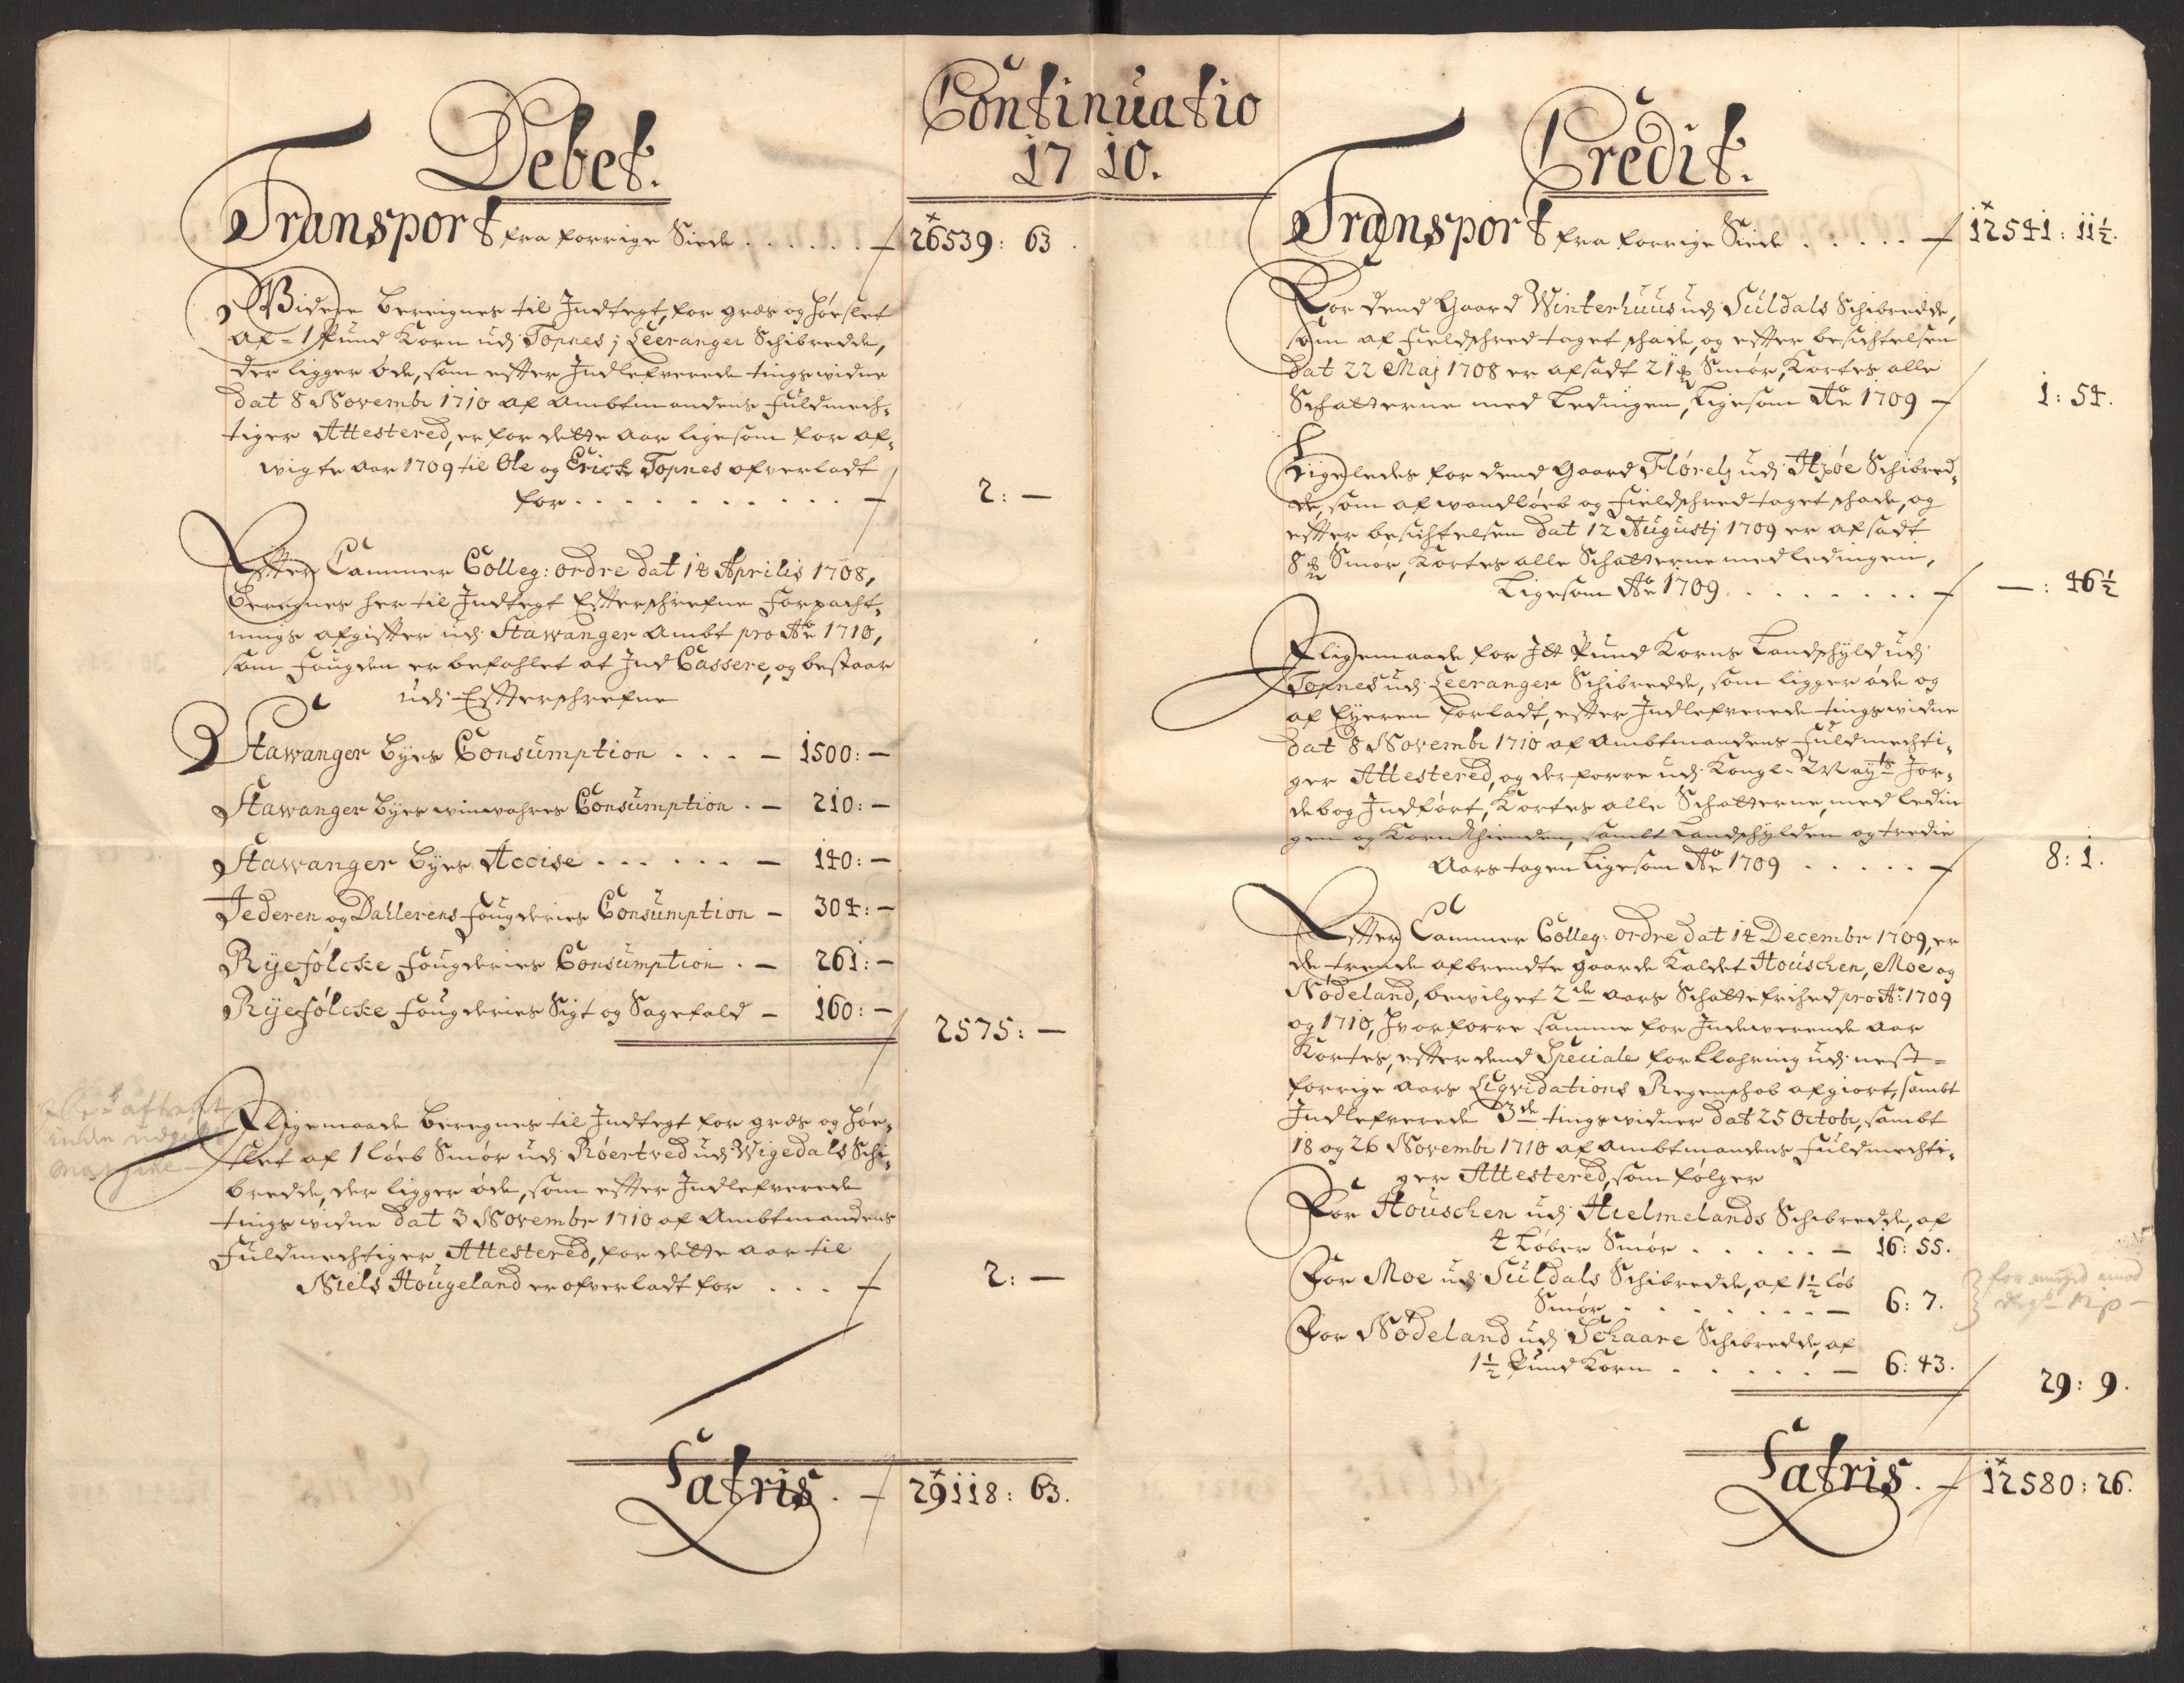 Continuatio
17 10.
Debet.
Transport fra forrige Siede . . . . . . — 26539: 63.
Widere beregnes til Indtegt, for græs og høeslet
af 1 Pund Korn udj Topnes j Leeranger Schibredde,
der ligger øde, som effter Indlefverede tingswidne
dat 8 Novembr 1710 af Ambtmandens fuldmech-
tiger Attestered, er for dette aar ligesom for af-
wigte aar 1709 til Ole og Erick Topnes ofverladt
for . . . . . . . . . . . — 2: —
Effter Cammer Colleg: ordre dat 14 Aprilis 1708,
beregnes her til Indtegt Effterschrefne forpacht-
nings afgiffter udj Stawanger Ambt pro Ao 1710,
som fougden er befahlet at Ind Cassere, og bestaar
udj Effterschrefne
Stawanger byes Consumption . . . — 1500: —
Stawanger byes winwahres Consumption . — 210: —
Stawanger byes Accise . . . . . . — 140: —
Jederen og Dahlerens fougderies Consumption — 304: —
Ryefølcke fougderies Consumption . — 261: —
Ryefølcke fougderies Sigt og Sagefald — 160: —
2575: —
Jligemaade beregnes til Indtegt for græs og høe-
slet af 1 løeb Smør udj Røertved udj Wigedals Schi-
bredde, der ligger øde, som effter Indlefverede
tingswidne dat 3 Novembr 1710 af Ambtmandens
fuldmechtiger Attestered, for dette aar til
Niels Hougeland er ofverladt for . . . — 2: —
Latris . — 29118: 63.
Credit.
Transport fra forrige Siede . . . . . — 12541: 11½.
For dend Gaard Winterhuus udj Suldals Schibredde,
som af fieldschred taget schade, og effter besichtelsen
dat 22 Maj 1708 er afsadt 21 ℔ Smør, Kortes alle
Schatterne med Ledingen, Ligesom Ao 1709 — 1: 54.
Ligeledes for dend Gaard Florely udj Høle Schibred-
de, som af wandløeb og fieldschred taget schade, og
effter besichtelsen dat 12 Augustj 1709 er afsadt
8 ℔ Smør, Kortes alle Schatterne med ledingen,
Ligesom Ao 1709 . . . . . . . — —: 46½
Jligemaade for Itt Pund Korns Landschyld udj
Topnes udj Leeranger Schibredde, som ligger øde og
af Eyeren forladt, effter Indlefverede tingswidne
dat 8 Novembr 1710 af Ambtmandens fuldmechti-
ger Attestered, og derforre udj Kongl: Mayts Jor-
debog Indført, Kortes alle Schatterne, med ledin
gen og Korn thienden, sambt Landschylden og tredie
Aars tagen Ligesom Ao 1709 . . . . . — 8: 1.
Effter Cammer Colleg: ordre dat 14 Decembr 1709, er
de trende afbrendte gaarde Kaldet Houschen, Moe og
Nødeland, bewilget 2de aars Schattefrihed pro Ao: 1709
og 1710, Hvorforre samme for Indewerende aar
Kortes, effter dend Speciale forklahring udj nest-
forrige aars Liqvidations Regenschab afgiort, sambt
Indlefverede 3de tingswidner dat 25 Octobr, sambt
18 og 26 Novembr 1710 af Ambtmandens fuldmechti-
ger Attestered, som følger
For Houschen udj Hielmelands Schibredde, af
4 Løber Smør . . . . . — 16: 55.
For Moe udj Suldals Schibredde, af 1½ løb
Smør . . . . . . . — 6: 7.
For Nødeland udj Schaare Schibredde, af
1½ Pund Korn . . . . . — 6: 43.
29: 9.
Latris . — 12580: 26.